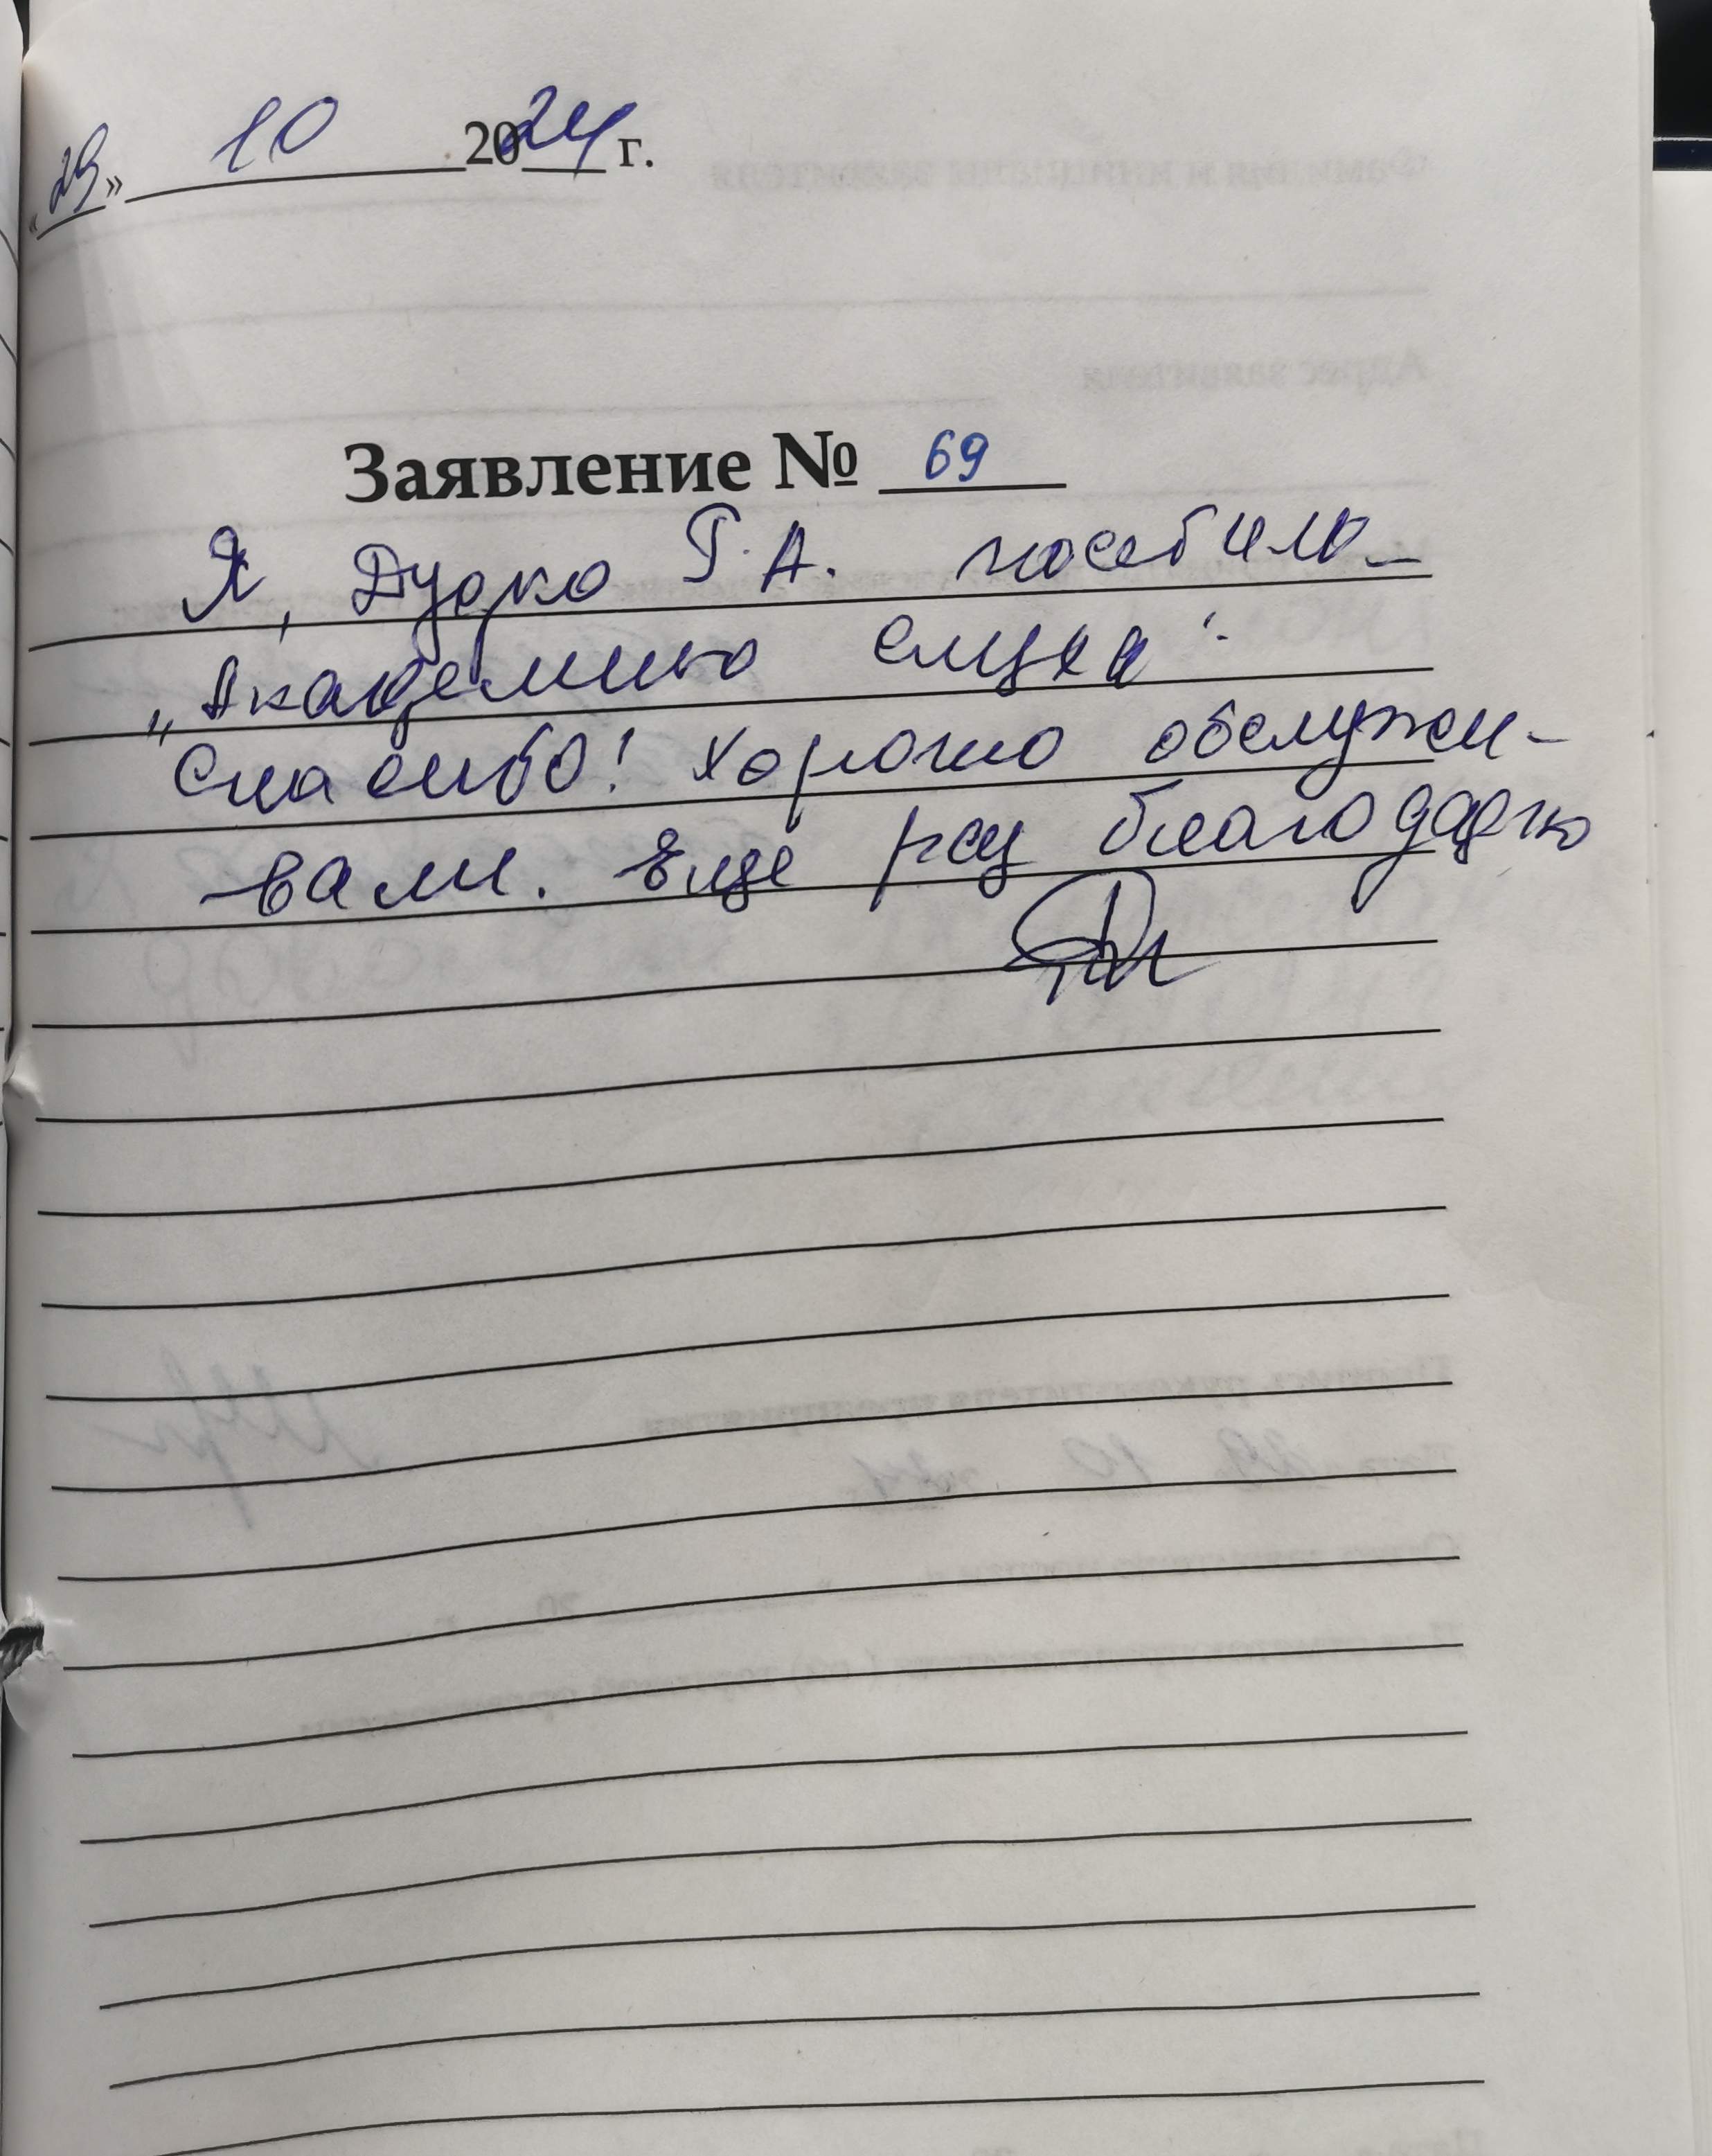 «29» 10 2024 г.
Заявление № 69
Я, Дудко Г.А. посетила
„Академию слуха".
Спасибо! Хорошо обслужи-
вали. Еще раз благодарю